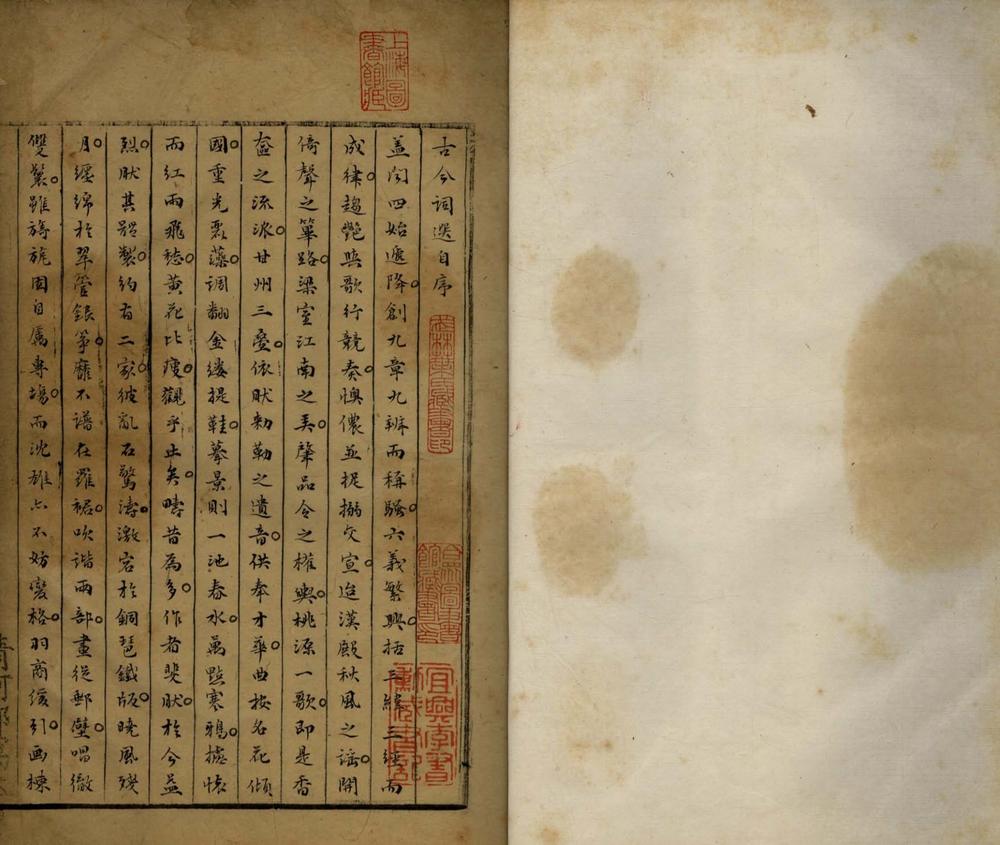 上海圖書館藏
古今詞選自序
蓋聞四始遞降創九章九辨而稱騷六義繁興括三緯三經而
成律趨艷與歌行競奏懊儂並捉搦交宣迨漢殿秋風之謡開
倚聲之篳路梁室江南之弄肇品令之權輿桃源一歌即是香
奩之流派甘州三疊依肰勅勒之遺音供奉才華曲按名花傾
國重光麗藻調翻金縷提鞋摹景則一池春水萬點寒鴉攄懷
而紅雨飛愁黄花比瘦觀乎止矣疇昔為多作者斐肰於今益
烈肰其體製約有二家彼亂石驚濤激宕於銅琶鐵版曉風殘
月纏綿於翠管銀箏靡不譜在羅裙吹諧兩部畫從郵壁唱徹
雙鬟雖旖旎固自属專場而沈雄亦不妨變格羽商緩引画棟
宜興李書勲藏書記